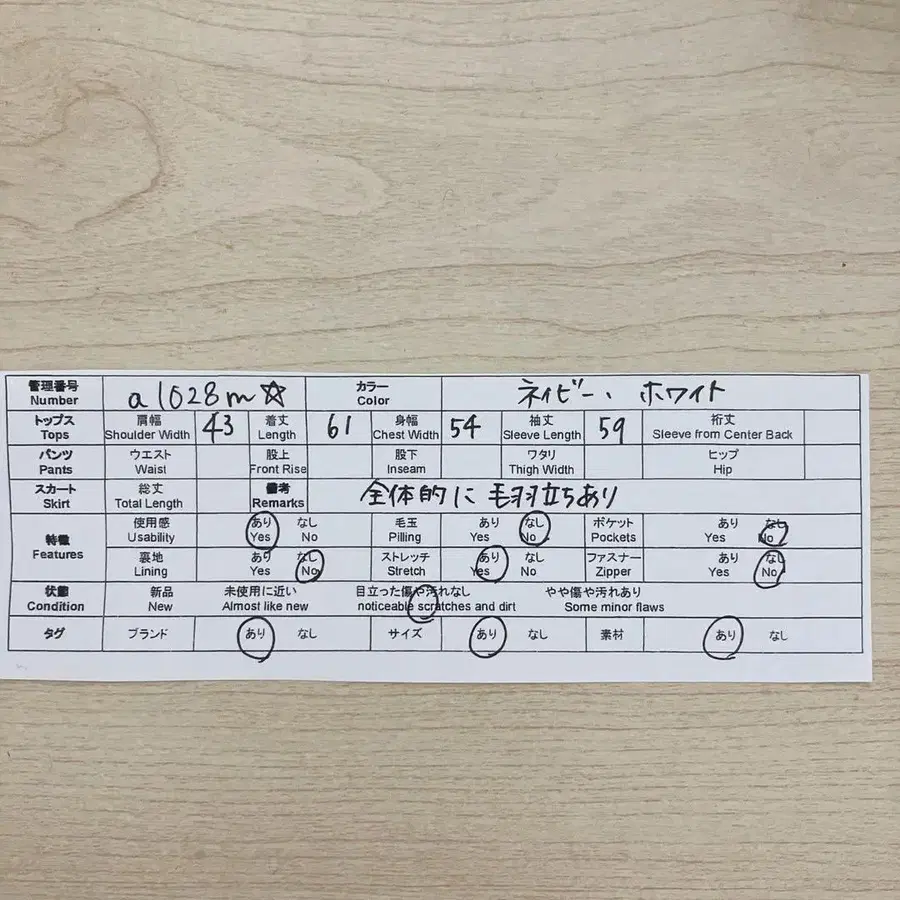 管理番号 a1028m☆ カラー ネイビー、ホワイト
Number Color
トップス 肩幅 43 着丈 61 身幅 54 袖丈 59 裄丈
Tops Shoulder Width Length Chest Width Sleeve Length Sleeve from Center Back
パンツ ウエスト 股上 股下 ワタリ ヒップ
Pants Waist Front Rise Inseam Thigh Width Hip
スカート 総丈 備考 全体的に毛羽立ちあり
Skirt Total Length Remarks
特徴 使用感 あり なし 毛玉 あり なし ポケット あり なし
Features Usability Yes No Pilling Yes No Pockets Yes No
裏地 あり なし ストレッチ あり なし ファスナー あり なし
Lining Yes No Stretch Yes No Zipper Yes No
状態 新品 未使用に近い 目立った傷や汚れなし やや傷や汚れあり
Condition New Almost like new noticeable scratches and dirt Some minor flaws
タグ ブランド あり なし サイズ あり なし 素材 あり なし